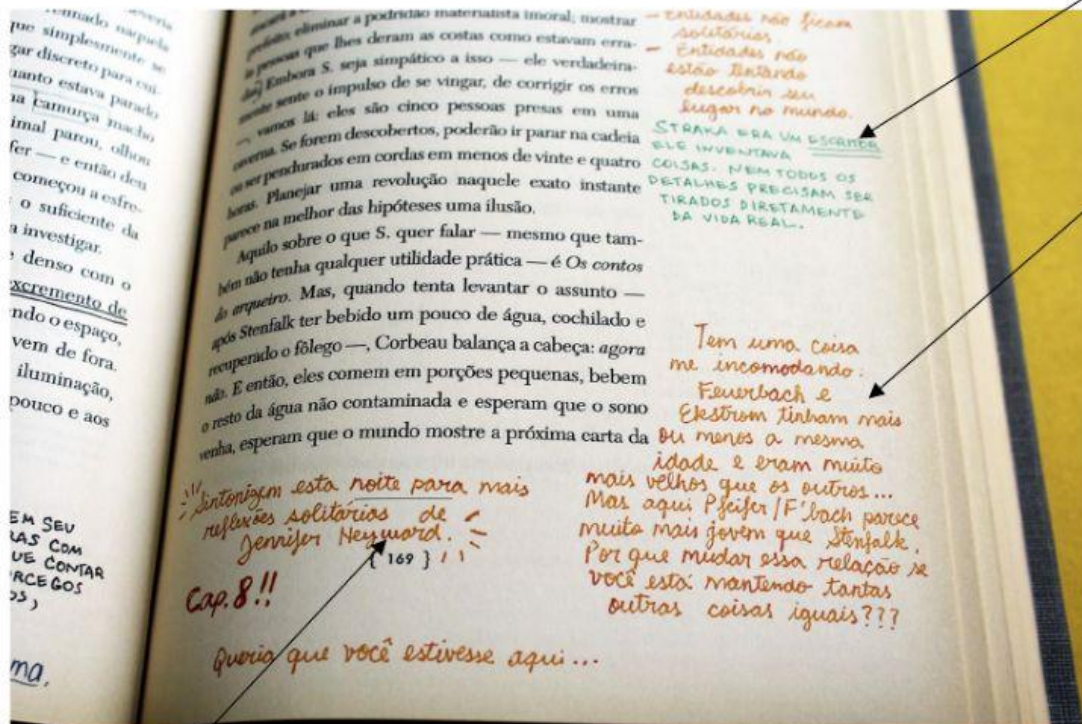 naquela
que simplesmente se
gar discreto para cui-
uanto estava parado
na camurça macho
imal parou, olhou
fer — e então deu
começou a esfre-
o suficiente da
a investigar.
e denso com o
excremento de
ndo o espaço,
vem de fora.
iluminação,
pouco e aos
EM SEU
RAS COM
UE CONTAR
RCEGOS
OS,
ma.
prefeito, eliminar a podridão materialista imoral; mostrar
às pessoas que lhes deram as costas como estavam erra-
das. Embora S. seja simpático a isso — ele verdadeira-
mente sente o impulso de se vingar, de corrigir os erros
—, vamos lá: eles são cinco pessoas presas em uma
caverna. Se forem descobertos, poderão ir parar na cadeia
ou ser pendurados em cordas em menos de vinte e quatro
horas. Planejar uma revolução naquele exato instante
parece na melhor das hipóteses uma ilusão.
Aquilo sobre o que S. quer falar — mesmo que tam-
bém não tenha qualquer utilidade prática — é Os contos
do arqueiro. Mas, quando tenta levantar o assunto —
após Stenfalk ter bebido um pouco de água, cochilado e
recuperado o fôlego —, Corbeau balança a cabeça: agora
não. E então, eles comem em porções pequenas, bebem
o resto da água não contaminada e esperam que o sono
venha, esperam que o mundo mostre a próxima carta da
- Entidades não ficam
solitárias.
- Entidades não
estão tentando
descobrir seu
lugar no mundo.
STRAKA ERA UM ESCRITOR
ELE INVENTAVA
COISAS. NEM TODOS OS
DETALHES PRECISAM SER
TIRADOS DIRETAMENTE
DA VIDA REAL.
Tem uma coisa
me incomodando:
Feuerbach e
Ekstrom tinham mais
ou menos a mesma
idade e eram muito
mais velhos que os outros...
Mas aqui Pfeifer/F'bach parece
muito mais jovem que Stenfalk.
Por que mudar essa relação se
você está mantendo tantas
outras coisas iguais???
Sintonizem esta noite para mais
reflexões solitárias de
Jennifer Heyward.
{ 169 }
Cap. 8!!
Queria que você estivesse aqui...